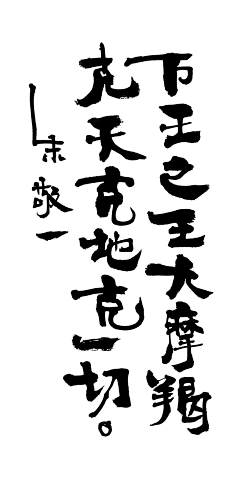 万王之王大摩羯
克天克地克一切。
朱敬一